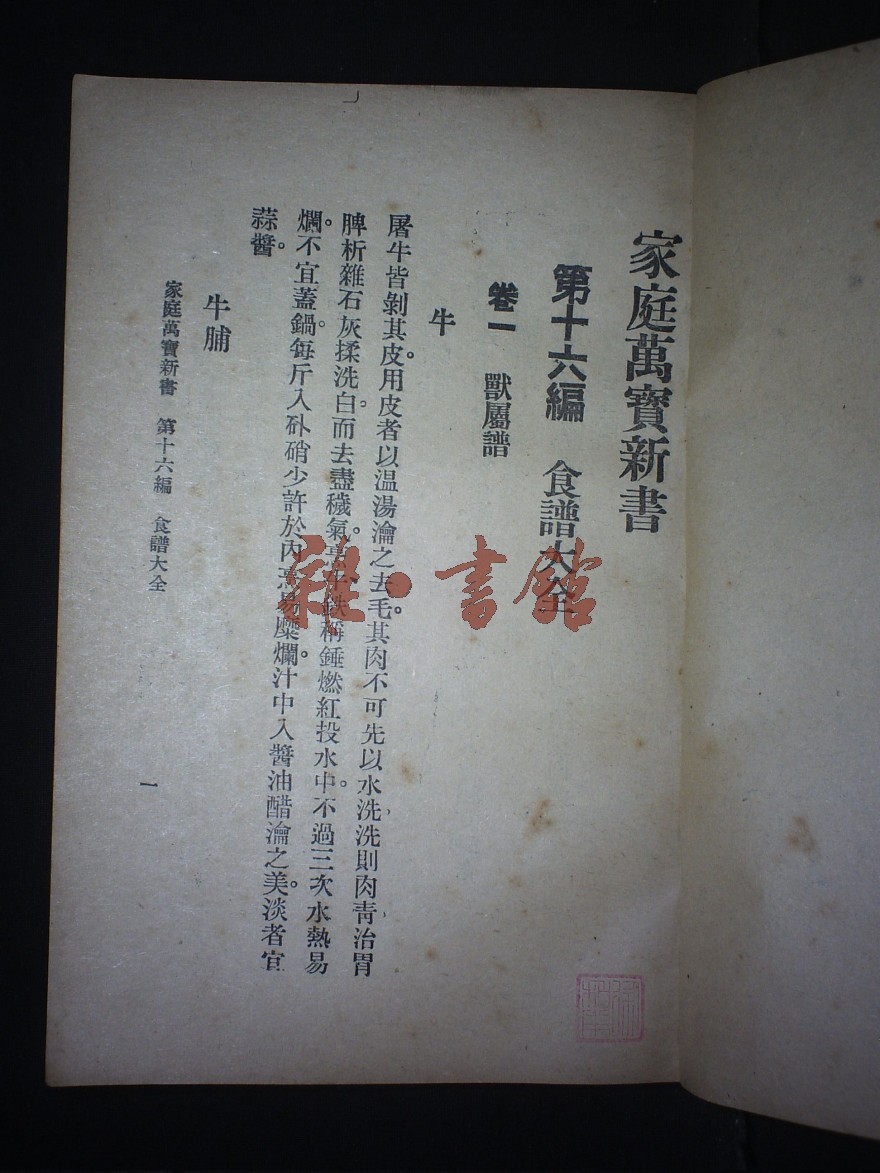 家庭萬寶新書
第十六編　食譜大全
卷一　獸屬譜
牛
屠牛皆剝其皮。用皮者以温湯瀹之去毛。其肉不可先以水洗、洗則肉靑、治胃
脾析雜石灰揉洗白。而去盡穢氣。烹牛鉄稱錘燃紅投水中。不過三次水熱易
爛。不宜蓋鍋。每斤入硝少許於內烹易糜爛。汁中入醬油醋瀹之美。淡者宜
蒜醬。
牛脯
家庭萬寶新書　第十六編　食譜大全
一
雜·書館